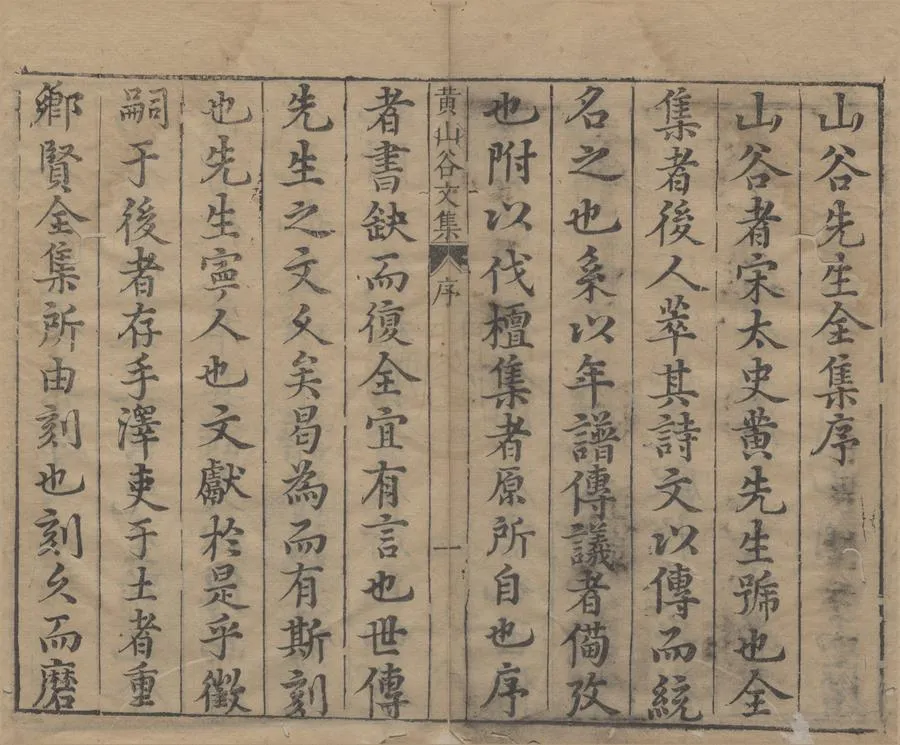 山谷先生全集序
山谷者宋太史黄先生號也全
集者後人萃其詩文以傳而統
名之也系以年譜傳議者備攷
也附以伐檀集者原所自也序
黄山谷文集 序 一
者書缺而復全宜有言也世傳
先生之文久矣曷為而有斯刻
也先生寧人也文獻於是乎徵
嗣于後者存手澤吏于土者重
鄉賢全集所由刻也刻久而磨